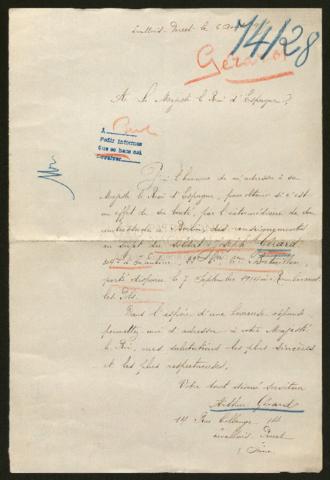 Levallois-Perret le 6
74/28
Gérard
A Sa Majesté le Roi d'Espagne
A Berl
Pedir informes
Que se haga así
J'ai l'honneur de m'adresser à sa
Majesté le Roi d'Espagne, pour obtenir si c'est
un effet de sa bonté, par l'intermédiaire de son
ambassade à Berlin, des renseignements
au sujet du soldat Joseph Gérard
d'Infanterie Bataillon
porté disparu le 7 Septembre 1914
les
Dans l'espoir d'une heureuse réponse
permettez-moi d'adresser à votre Majesté
le Roi, mes salutations les plus sincères
et les plus respectueuses.
Votre tout dévoué serviteur
Arthur Gérard
14 Rue
Levallois Perret
Seine